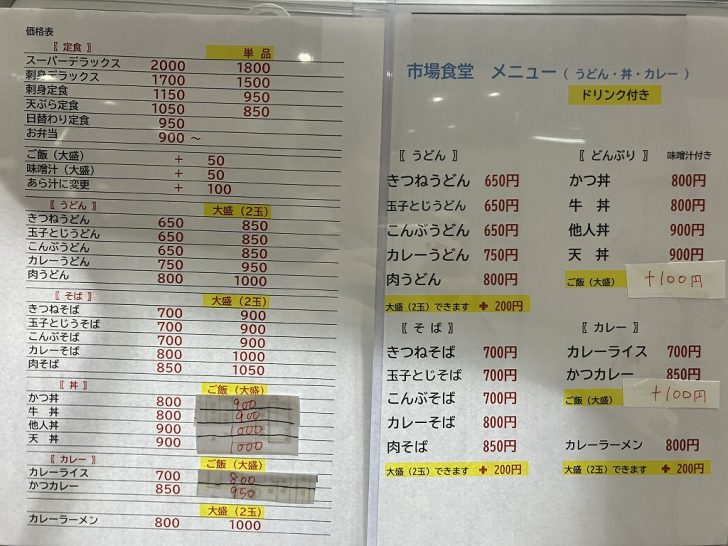 価格表
〖 定食 〗 単 品
スーパーデラックス 2000 1800
刺身デラックス 1700 1500
刺身定食 1150 950
天ぷら定食 1050 850
日替わり定食 950
お弁当 900 ～
ご飯（大盛） + 50
味噌汁（大盛） + 50
あら汁に変更 + 100
〖 うどん 〗 大盛（2玉）
きつねうどん 650 850
玉子とじうどん 650 850
こんぶうどん 650 850
カレーうどん 750 950
肉うどん 800 1000
〖 そば 〗 大盛（2玉）
きつねそば 700 900
玉子とじうそば 700 900
こんぶそば 700 900
カレーそば 800 1000
肉そば 850 1050
〖 丼 〗 ご飯（大盛）
かつ丼 800 900
牛 丼 800 900
他人丼 900 1000
天 丼 900 1000
〖 カレー 〗 ご飯（大盛）
カレーライス 700 800
かつカレー 850 950
大盛（2玉）
カレーラーメン 800 1000
市場食堂 メニュー（ うどん・丼・カレー ）
ドリンク付き
〖 うどん 〗
きつねうどん 650円
玉子とじうどん 650円
こんぶうどん 650円
カレーうどん 750円
肉うどん 800円
大盛（2玉）できます + 200円
〖 そば 〗
きつねそば 700円
玉子とじそば 700円
こんぶそば 700円
カレーそば 800円
肉そば 850円
大盛（2玉）できます + 200円
〖 どんぶり 〗 味噌汁付き
かつ丼 800円
牛 丼 800円
他人丼 900円
天 丼 900円
ご飯（大盛） +100円
〖 カレー 〗
カレーライス 700円
かつカレー 850円
ご飯（大盛） +100円
カレーラーメン 800円
大盛（2玉）できます + 200円